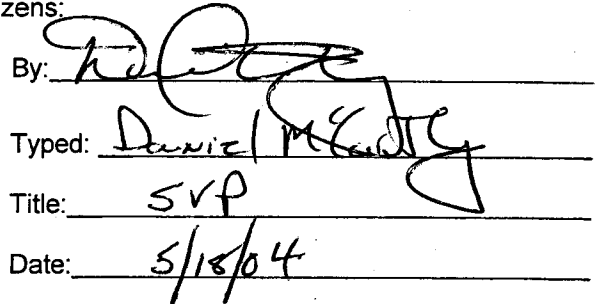 zens:
By:
Typed: Daniel McCarthy
Title: SVP
Date: 5/18/04